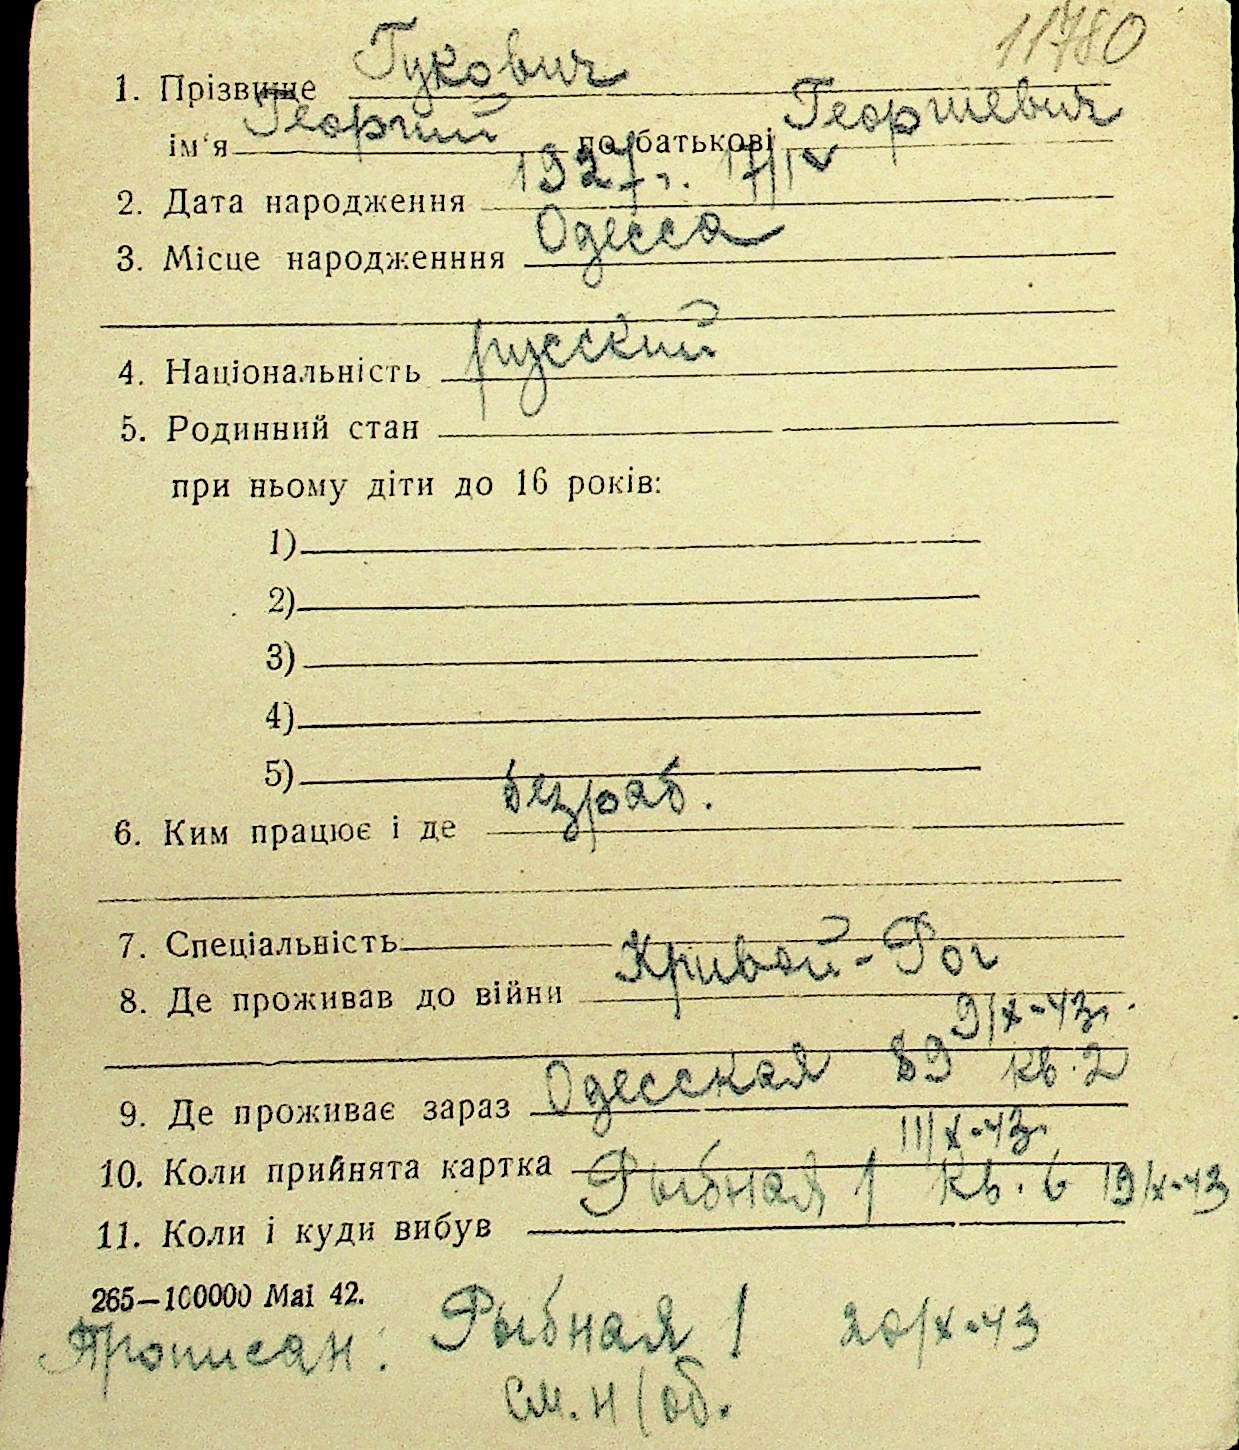 11780
1. Прізвище Гукович
ім'я Георгий по батькові Георгиевич
2. Дата народження 1927 г. 17/IV
3. Місце народженння Одесса
4. Національність русский
5. Родинний стан
при ньому діти до 16 років:
1)
2)
3)
4)
5)
6. Ким працює і де безраб.
7. Спеціальність
8. Де проживав до війни Кривой-Рог
9/X-43г.
9. Де проживає зараз Одесская 89 кв. 2
III/X-43г.
10. Коли прийнята картка
Рыбная 1 кв. 6 19/X-43
11. Коли і куди вибув
265—100000 Mai 42.
Прописан: Рыбная 1 20/X-43
см. н/об.